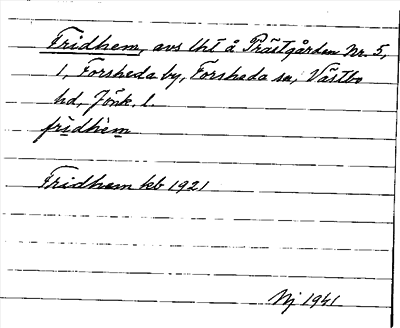 Fridhem, avs lht å Prästgården Nr. 5,
1, Forsheda by, Forsheda sn, Västbo
hd, Jönk. l.
fridhem
Fridhem kb 1921
Nj 1941